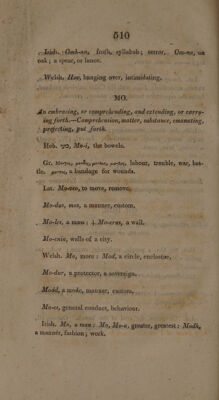 510
Irish. Omh-an, froth, syllabub; terror. Om-na, an
oak; a spear, or lance.
Welsh. How, hanging over, intimidating.
MO.
An embracing, or comprehending, and extending, or carry-
ing forth.—Comprehension, matter, substance, emanating,
projecting, put forth.
Heb. Mo-i, the bowels.
Gr. labour, trouble, war, bus-
tle. a bandage for wounds.
Lat. Mo-veo, to move, remove,
Mo-dus, mos, a manner, custom.
Mo-les, a mass: Mo-erus, a wall.
Mo-enia, walls of a city.
Welsh. Mo, more: Mod, a circle, enclosure,
Mo-dur, a protector, a sovereign.
Modd, a mode, manner, custom,
Mo-es, general conduct, behaviour.
Irish. Mo, a man: Mo, Mo-a, greater, greatest: Modh,
a manner, fashion; work.